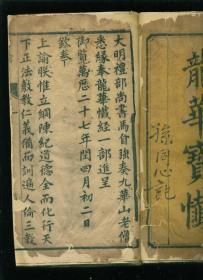 大明禮部尚書馬自強奏九華山老僧
悉緣奉龍華懺經一部進呈
御覽萬曆二十七年閏四月初二日
欽奉
上諭朕惟立綱陳紀道德全而化行天
下正法敷教仁義備而訓遍人倫三教
龍華寶懺
孫同心記